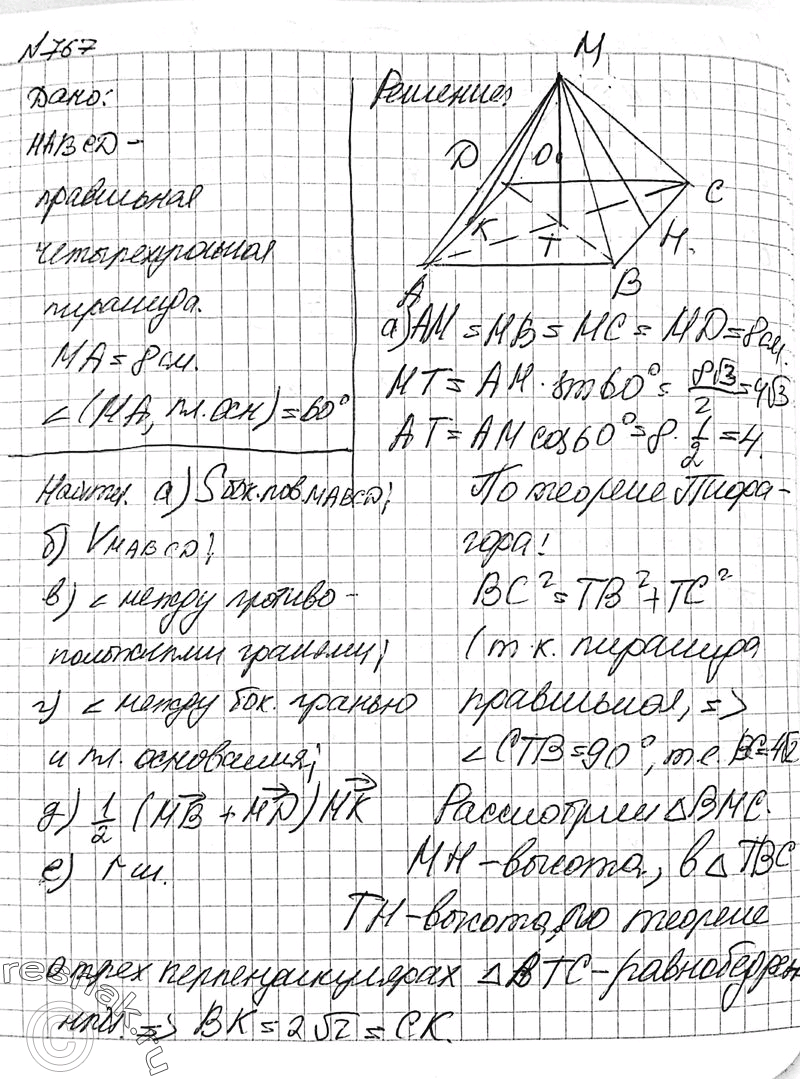 №767
Дано:
MABCD –
правильная
четырехугольная
пирамида.
MA = 8 см.
∠(MA, пл. осн) = 60°
Найти: а) Sбок.пов.MABCD;
б) VMABCD;
в) ∠ между противо-
положными гранями;
г) ∠ между бок. гранью
и пл. основания;
д) 1/2 (MB + MD) MK
е) r ш.
Решение:
M
D
O
C
K
T
H.
A
B
а) AM = MB = MC = MD = 8 см.
MT = AM · sin60° = 8√3/2 = 4√3
AT = AM cos60° = 8 · 1/2 = 4.
По теореме Пифа-
гора:
BC² = TB² + TC²
(т.к. пирамида
правильная, =>
∠CTB = 90°, т.е. BC = 4√2
Рассмотрим △BMC.
MH – высота, в △TBC
TH – высота, по теореме
о трех перпендикулярах △BTC – равнобедрен-
ный. => BK = 2√2 = CK.
reshak.ru